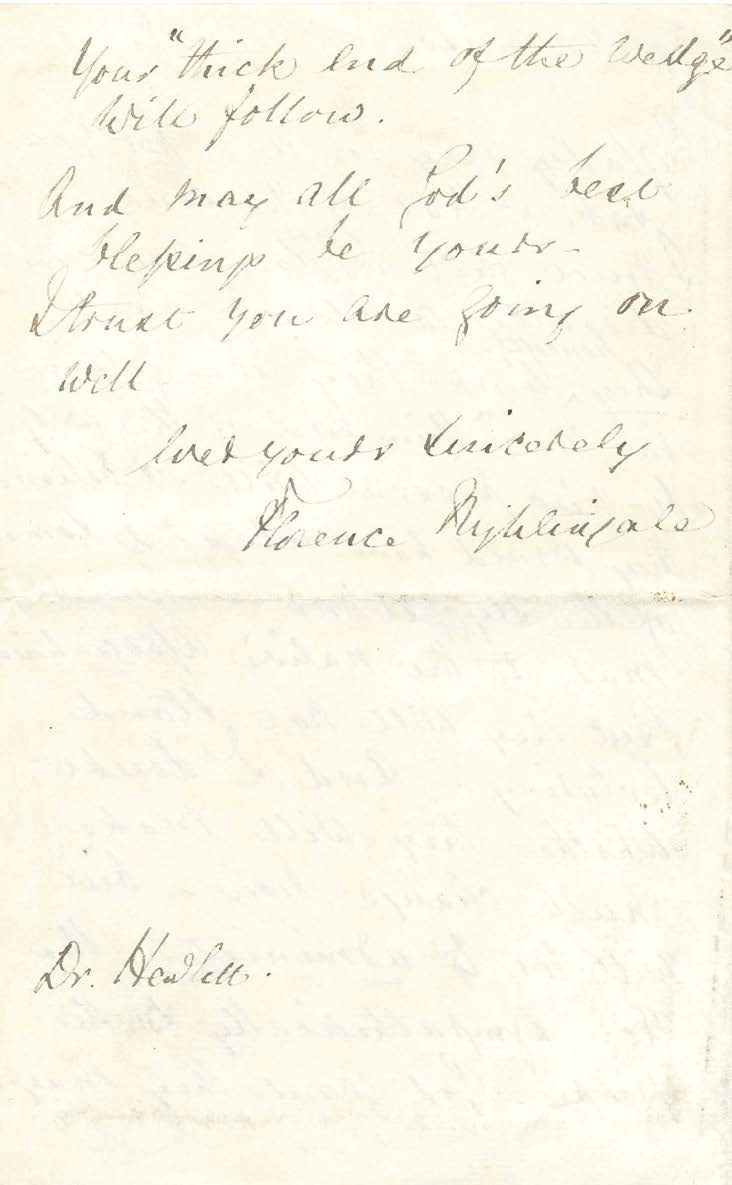 Your "thick end of the wedge"
will follow.
And may all God's best
blessings be yours -
I trust you are going on
well
ever yours sincerely
Florence Nightingale
Dr. Hewlett.